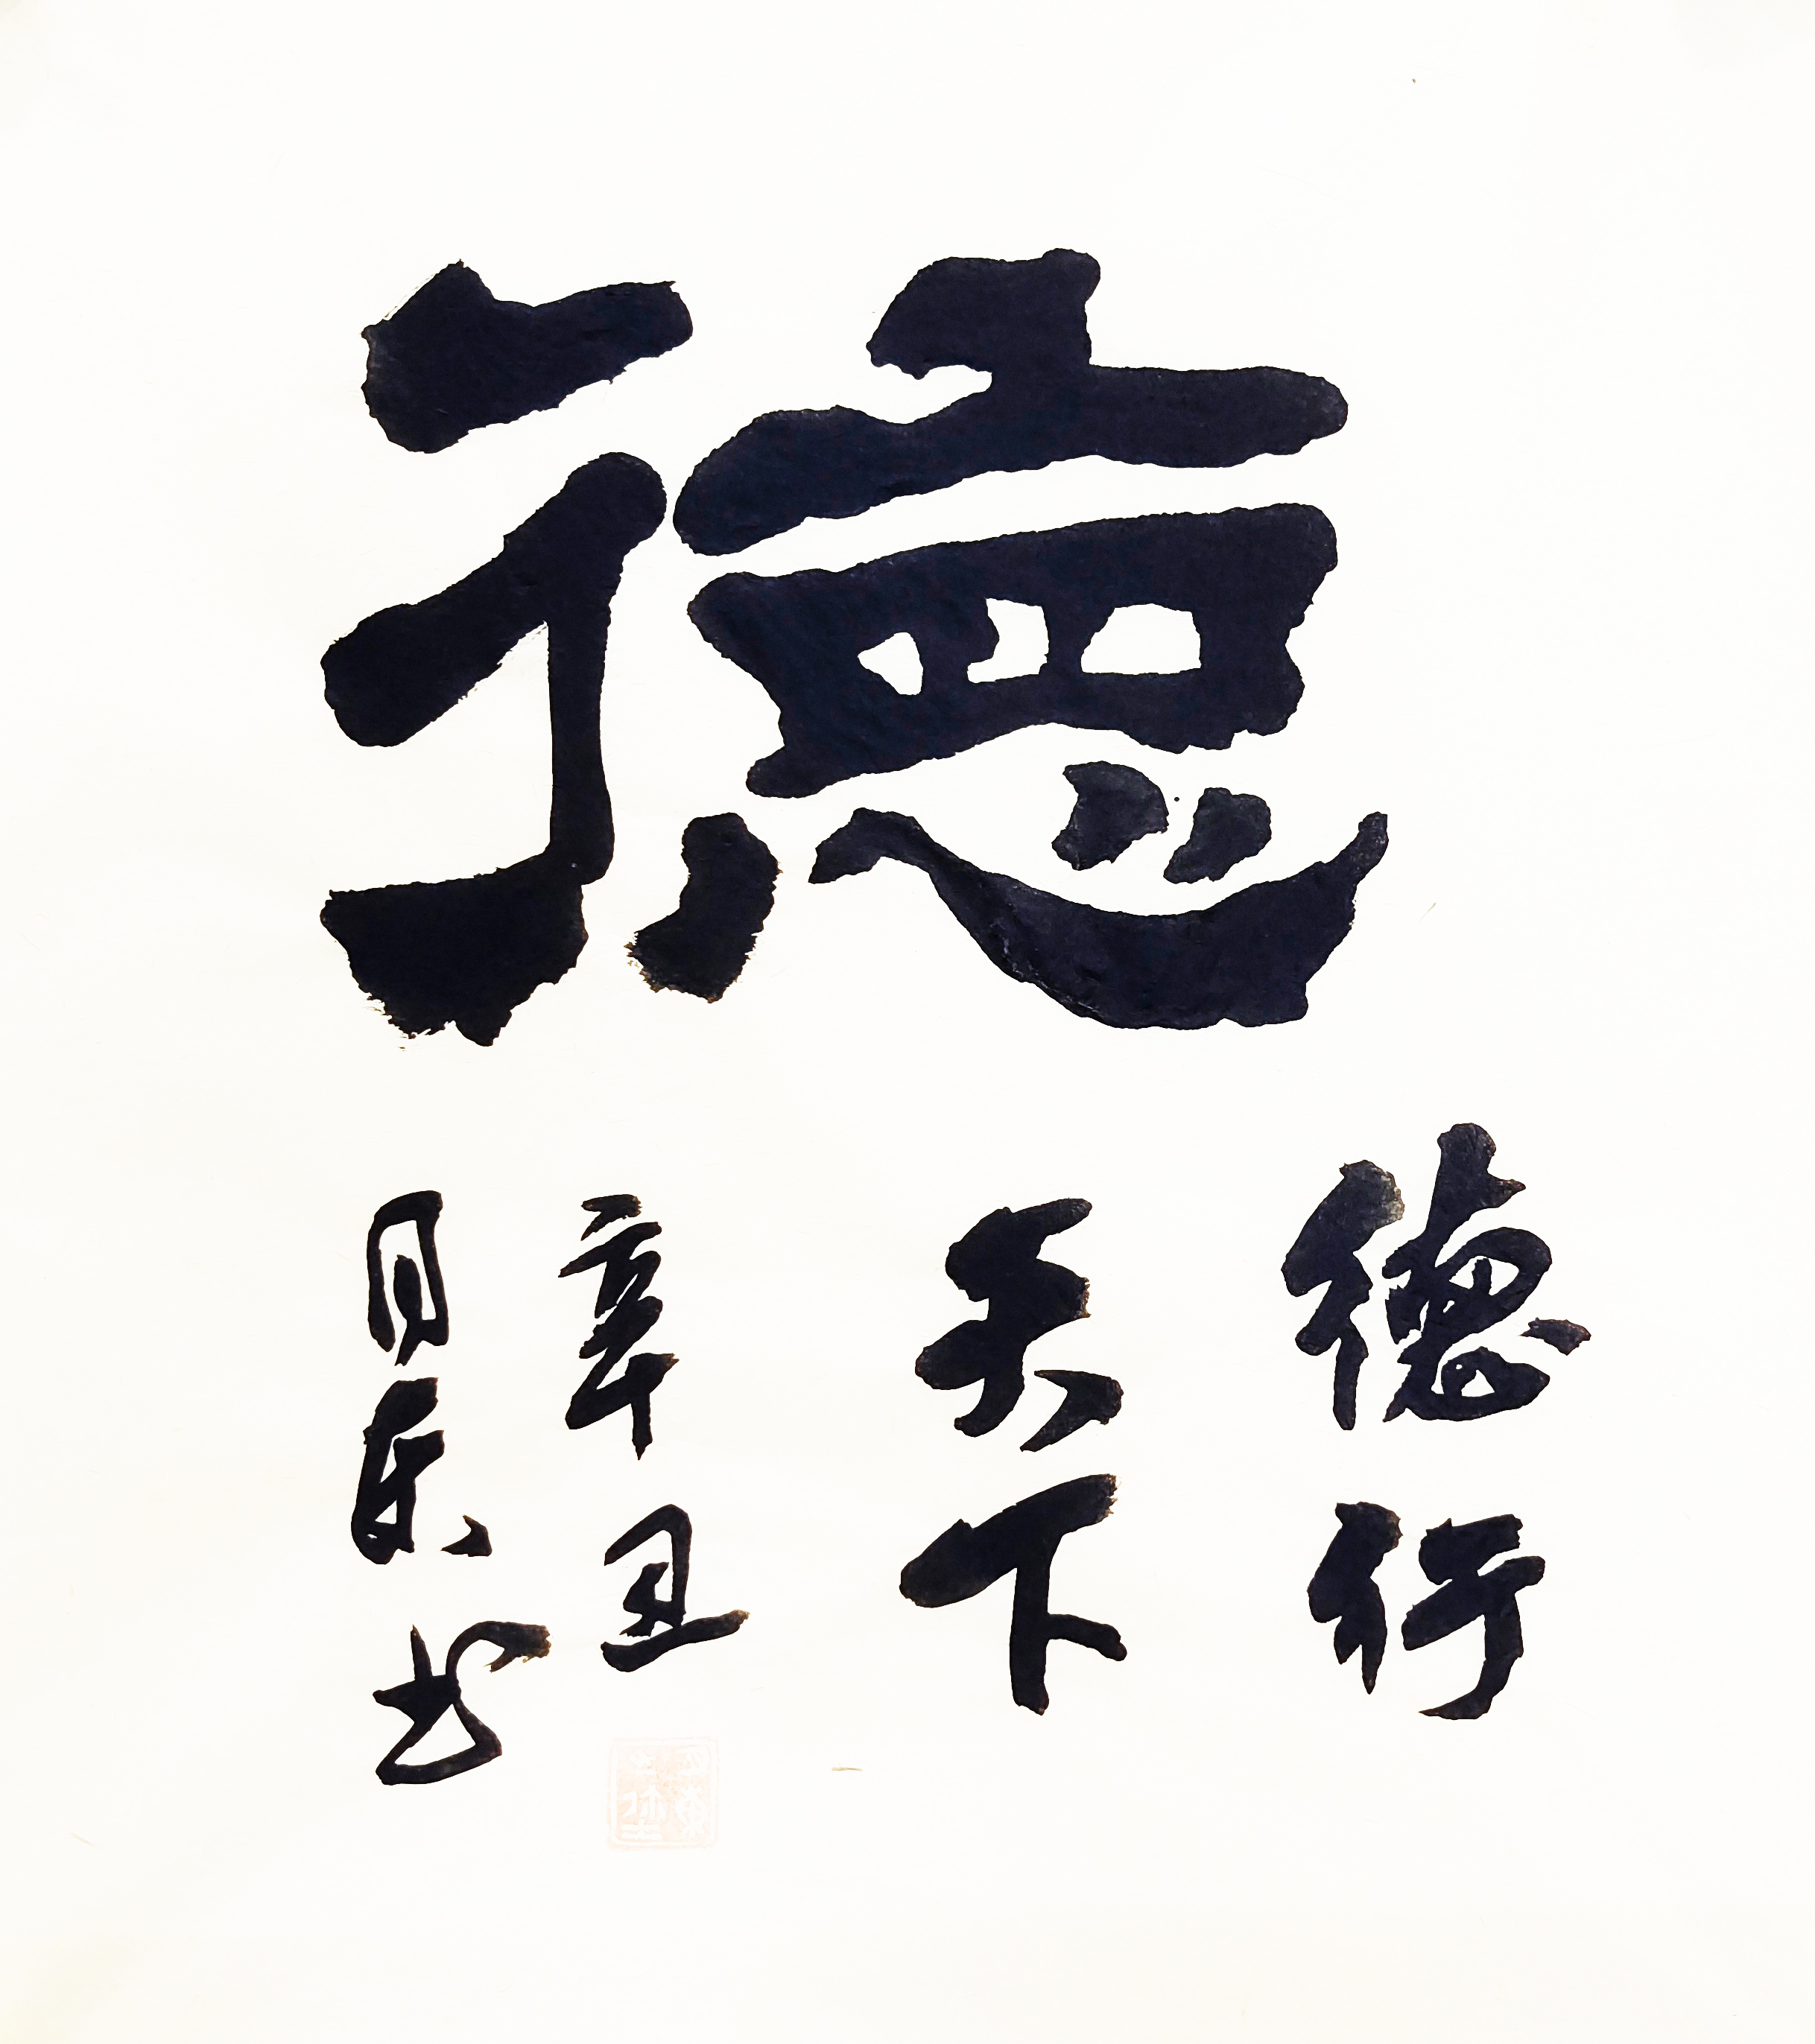 德
德行
天下
辛丑
月东书